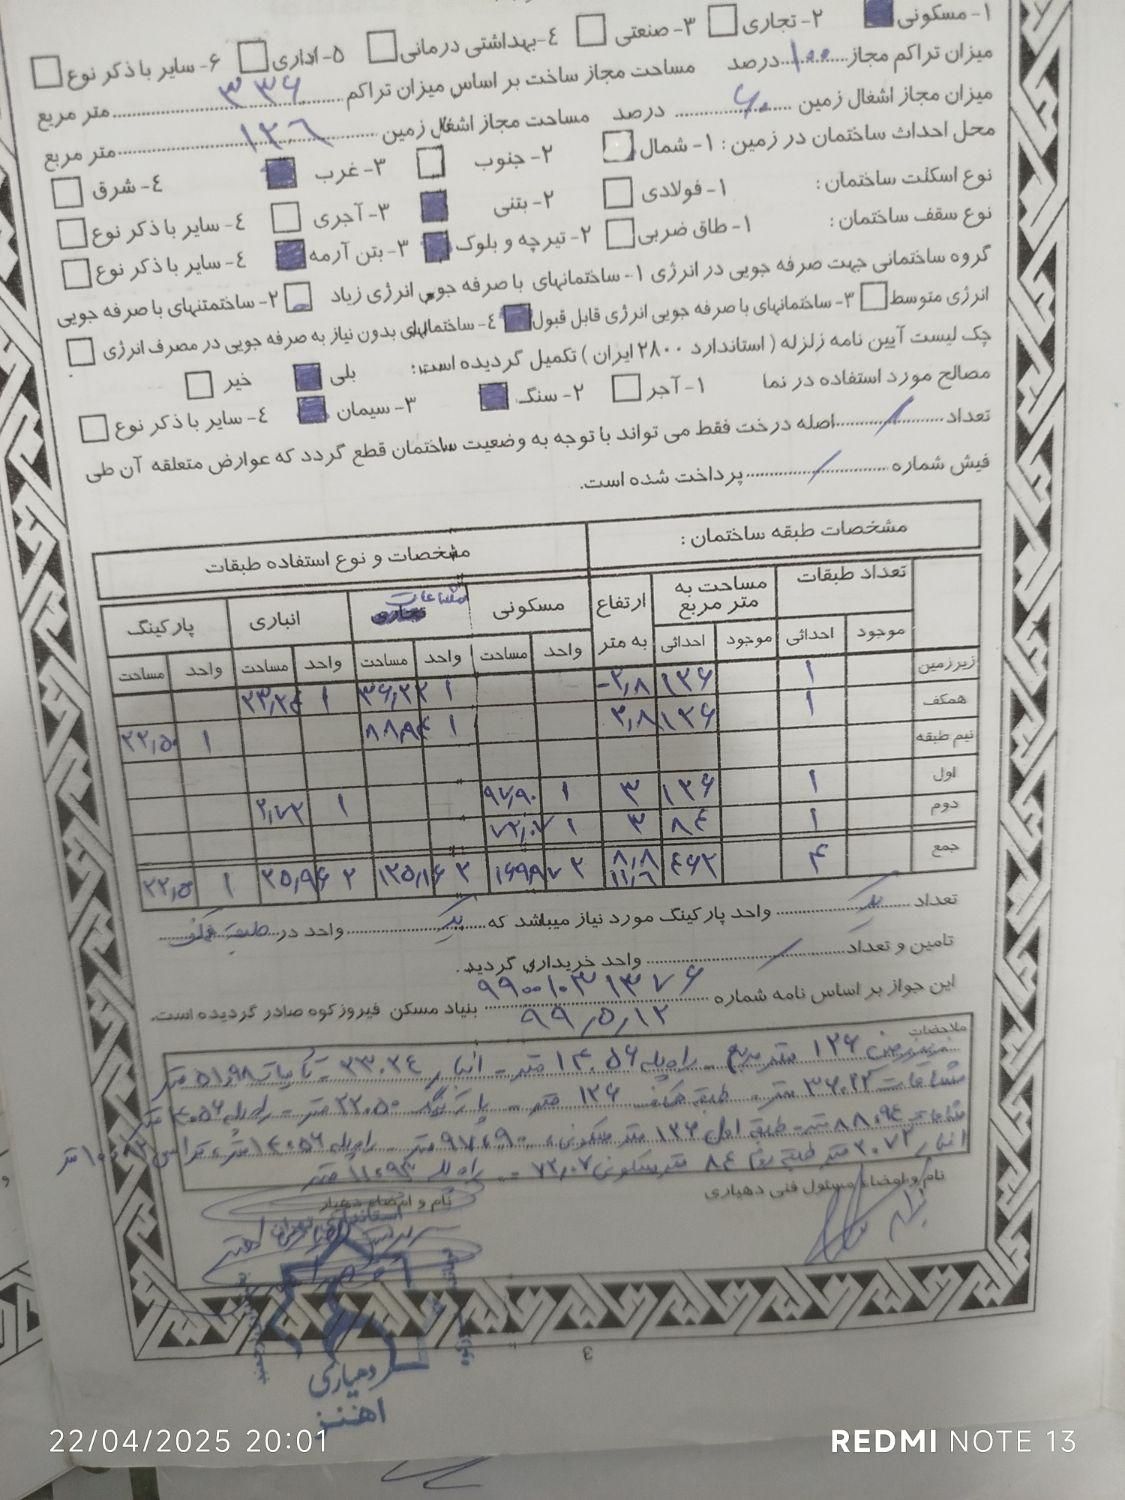 ۱- مسکونی ۲- تجاری ۳- صنعتی ٤- بهداشتی درمانی ۵- اداری ۶- سایر با ذکر نوع
میزان تراکم مجاز ۱۰۰ درصد مساحت مجاز ساخت بر اساس میزان تراکم ۳۳۶ متر مربع
میزان مجاز اشغال زمین ۶۰ درصد مساحت مجاز اشغال زمین ۱۲۶ متر مربع
محل احداث ساختمان در زمین : ۱- شمال ۲- جنوب ۳- غرب ٤- شرق
نوع اسکلت ساختمان: ۱- فولادی ۲- بتنی ۳- آجری ٤- سایر با ذکر نوع
نوع سقف ساختمان: ۱- طاق ضربی ۲- تیرچه و بلوک ۳- بتن آرمه ٤- سایر با ذکر نوع
گروه ساختمانی جهت صرفه جویی در انرژی ۱- ساختمانهای با صرفه جویی انرژی زیاد ۲- ساختمنتهای با صرفه جویی
انرژی متوسط ۳- ساختمانهای با صرفه جویی انرژی قابل قبول ٤- ساختمانهای بدون نیاز به صرفه جویی در مصرف انرژی
چک لیست آیین نامه زلزله ( استاندارد ۲۸۰۰ ایران ) تکمیل گردیده است: بلی خیر
مصالح مورد استفاده در نما ۱- آجر ۲- سنگ ۳- سیمان ٤- سایر با ذکر نوع
تعداد / اصله درخت فقط می تواند با توجه به وضعیت ساختمان قطع گردد که عوارض متعلقه آن طی
فیش شماره / پرداخت شده است.
مشخصات طبقه ساختمان : مشخصات و نوع استفاده طبقات
تعداد طبقات مساحت به متر مربع ارتفاع به متر مسکونی مشاعات انباری پارکینگ
موجود احداثی موجود احداثی واحد مساحت واحد مساحت واحد مساحت واحد مساحت
زیرزمین ۱ ۱۲۶ ۲٫۸- ۱ ۳۶٫۲۲ ۱ ۲۳٫۲٤
همکف ۱ ۱۲۶ ۲٫۸ ۱ ۸۸٫۹٤ ۱ ۲۲٫۵۰
نیم طبقه
اول ۱ ۱۲۶ ۳ ۱ ۹۷٫۹۰ ۱ ۲٫۷۲
دوم ۱ ۸٤ ۳ ۱ ۷۲٫۰۷
جمع ۴ ٤۶۲ ۸٫۸ ۱۱٫۶ ۲ ۱۶۹٫۹۷ ۲ ۱۲۵٫۱۶ ۲ ۲۵٫۹۶ ۱ ۲۲٫۵
تعداد یک واحد پارکینگ مورد نیاز میباشد که یک واحد در طبقه همکف
تامین و تعداد / واحد خریداری گردید.
این جواز بر اساس نامه شماره ۹۹۰۰۱۰۳۱۳۷۶ ۹۹٫۵٫۱۲ بنیاد مسکن فیروزکوه صادر گردیده است.
ملاحضات
زیرزمین ۱۲۶ متر مربع - راه پله ۱۴.۵۶ متر - انبار ۲۳.۲٤ - تاسیسات ۵۱.۹۸ متر
مشاعات ۳۶.۲۲ متر - طبقه همکف ۱۲۶ متر - پارکینگ ۲۲.۵۰ متر - راه پله
مشاعات ۸۸.۹٤ متر - طبقه اول ۱۲۶ متر مسکونی ۹۷.۹۰ متر - راه پله ۱۴.۵۶ متر، تراس متر
انبار ۲.۷۲ متر طبقه دوم ۸٤ متر مسکونی ۷۲.۰۷ - راه پله ۱۱.۹۳ متر
نام و امضاء مسئول فنی دهیاری نام و امضاء دهیار
دهیاری
اهنز
3
22/04/2025 20:01 REDMI NOTE 13